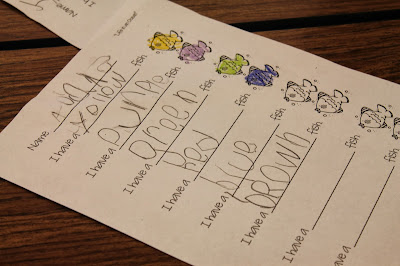 Name
I have a Yellow fish
I have a purple fish
I have a green fish
I have a Red fish
I have a blue fish
I have a brown fish
I have a fish
I have a fish